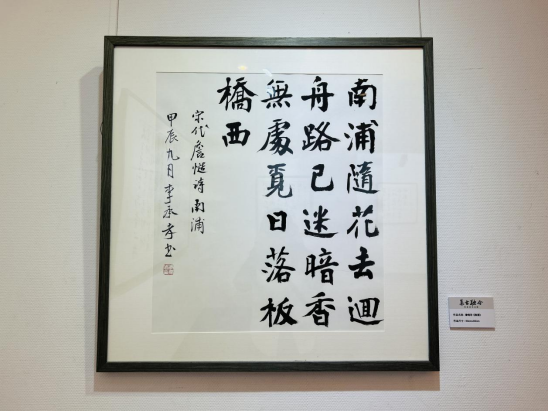 南浦隨花去迴
舟路已迷暗香
無處覓日落板
橋西
宋代詹慥诗南浦
甲辰九月李承孝书